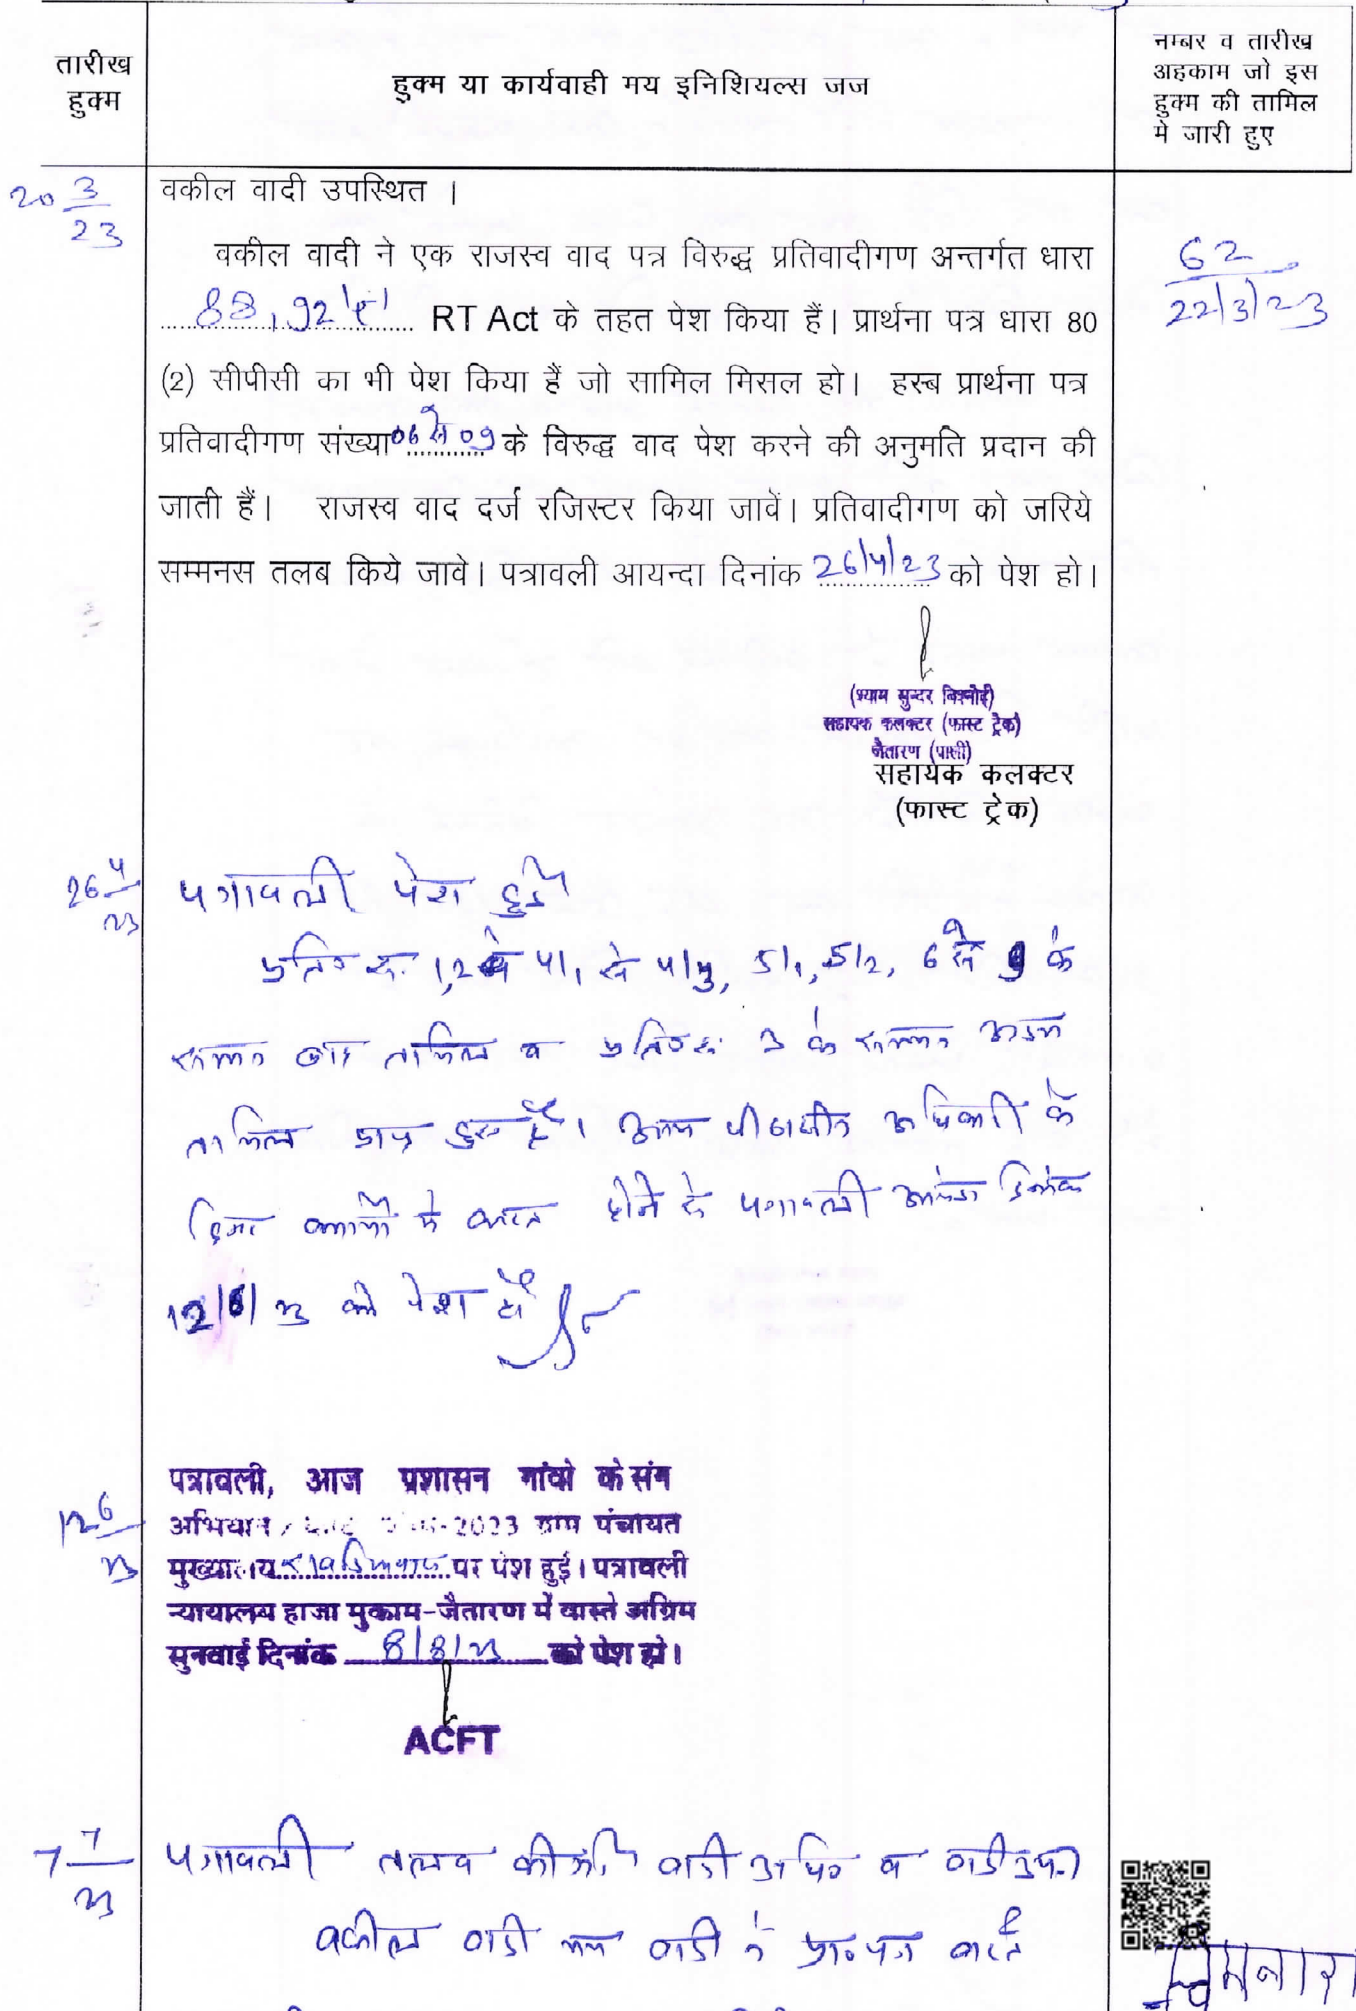 तारीख
हुक्म
हुक्म या कार्यवाही मय इनिशियल्स जज
नम्बर व तारीख
अहकाम जो इस
हुक्म की तामिल
मे जारी हुए
20 3/23
वकील वादी उपस्थित ।
वकील वादी ने एक राजस्व वाद पत्र विरुद्ध प्रतिवादीगण अन्तर्गत धारा
88, 92 RT Act के तहत पेश किया हैं। प्रार्थना पत्र धारा 80
(2) सीपीसी का भी पेश किया हैं जो सामिल मिसल हो। हस्ब प्रार्थना पत्र
प्रतिवादीगण संख्या 06 से 09 के विरुद्ध वाद पेश करने की अनुमति प्रदान की
जाती हैं। राजस्व वाद दर्ज रजिस्टर किया जावें। प्रतिवादीगण को जरिये
सम्मनस तलब किये जावे। पत्रावली आयन्दा दिनांक 26/4/23 को पेश हो।
62
22/3/23
(श्याम सुन्दर बिश्नोई)
सहायक कलक्टर (फास्ट ट्रेक)
जैतारण (पाली)
सहायक कलक्टर
(फास्ट ट्रेक)
26 4/23
पत्रावली पेश हुई
प्रति० सं. 1,2 4/1 से 4/4, 5/1, 5/2, 6 से 9 के
तामिल व प्रति० सं. 3 के
तामिल प्राप्त हुए है। पीठासीन अधिकारी के
होने से पत्रावली दिनांक
12/6/23 को पेश हो
12 6/23
पत्रावली, आज प्रशासन गांवो के संग
अभियान -2023 ग्राम पंचायत
मुख्यालय पर पेश हुई। पत्रावली
न्यायालय हाजा मुकाम-जैतारण में वास्ते अग्रिम
सुनवाई दिनांक 8/8/23 को पेश हो।
ACFT
7 7/23
पत्रावली तलब की गई वादी व वादी
वकील वादी वादी ने